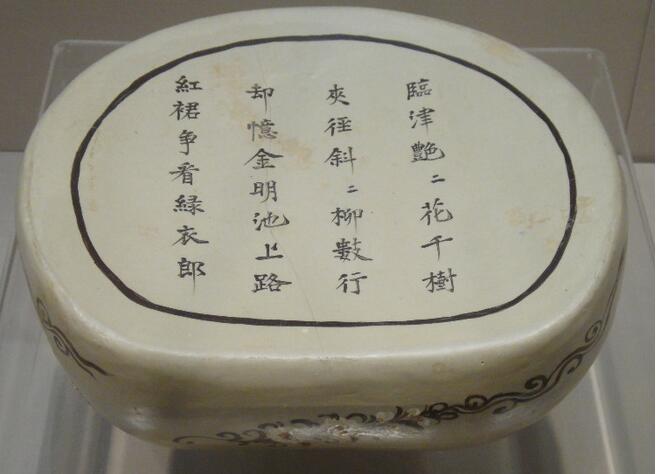 臨津艶〻花千樹
夾徑斜〻柳數行
却憶金明池上路
紅裙争看緑衣郎